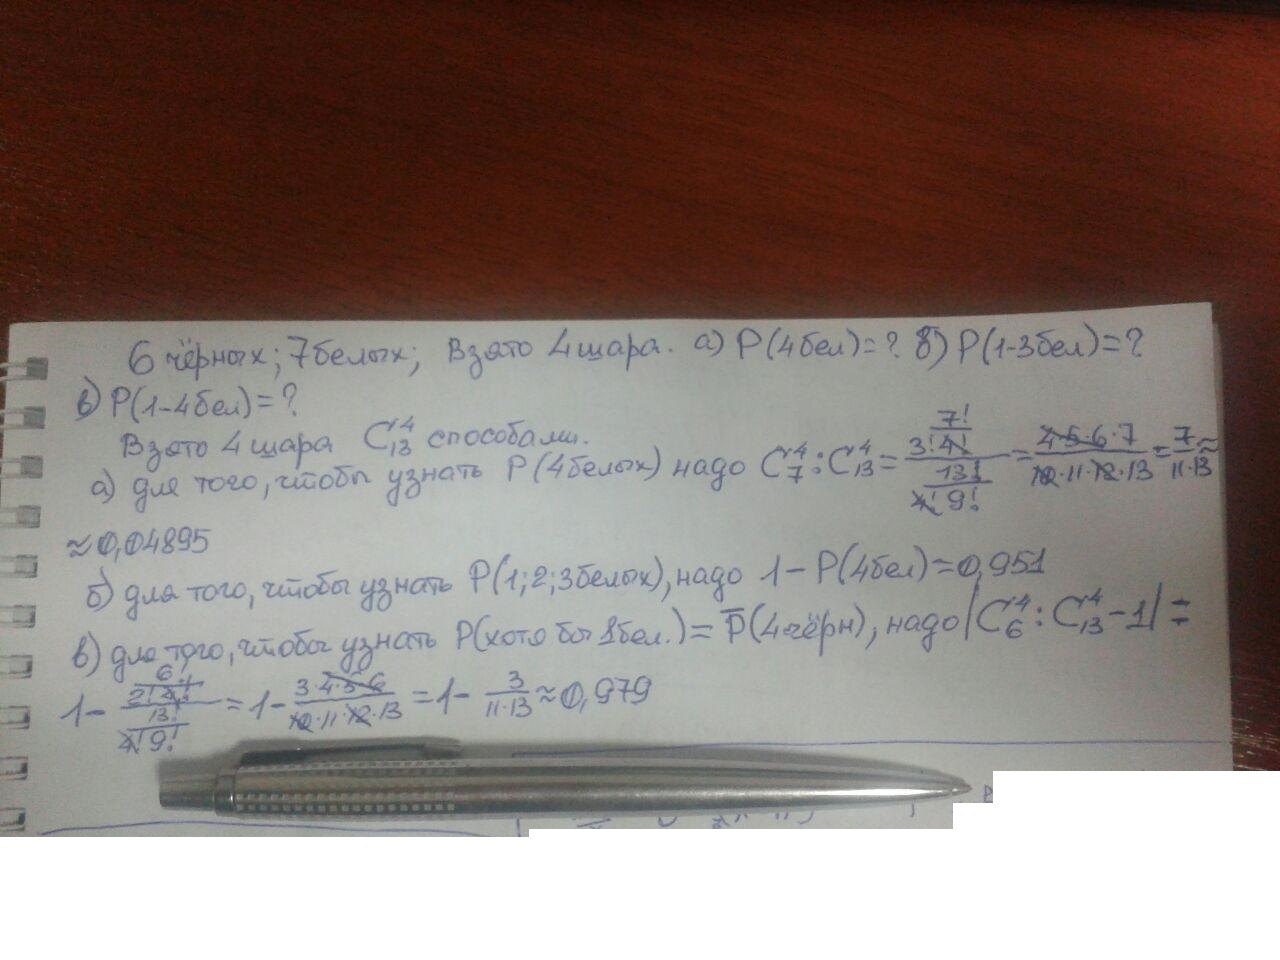 6 чёрных; 7 белых; Взято 4 шара. а) P(4бел)=? б) P(1-3бел)=?
в) P(1-4бел)=?
Взято 4 шара C₁₃⁴ способами.
а) для того, чтобы узнать P(4белых) надо C₇⁴:C₁₃⁴ = (7!/(3!4!))/(13!/(4!9!)) = (4·5·6·7)/(10·11·12·13) = 7/(11·13) ≈
≈0,04895
б) для того, чтобы узнать P(1;2;3белых), надо 1-P(4бел)=0,951
в) для того, чтобы узнать P(хотя бы 1бел.)=P̅(4чёрн), надо |C₆⁴:C₁₃⁴-1| =
1-(6!/(2!4!))/(13!/(4!9!)) = 1-(3·4·5·6)/(10·11·12·13) = 1-3/(11·13) ≈0,979